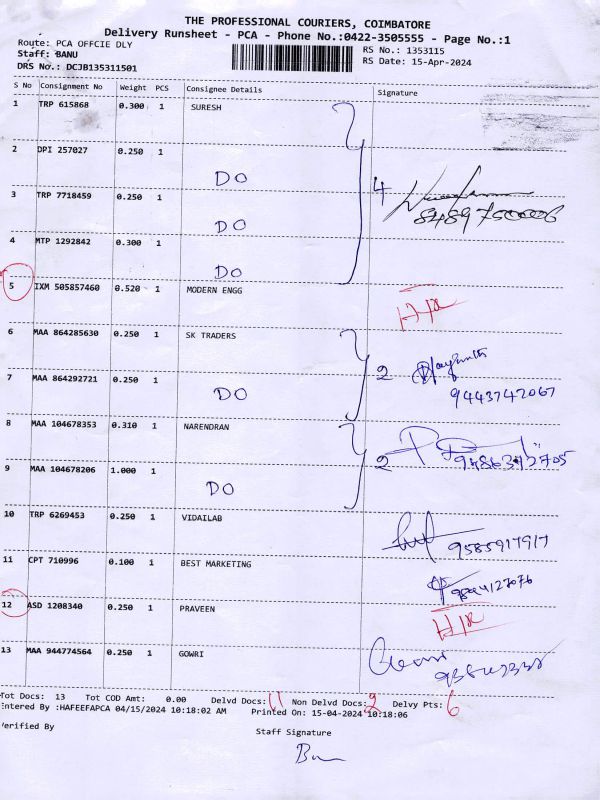 THE PROFESSIONAL COURIERS, COIMBATORE
Delivery Runsheet - PCA - Phone No.:0422-3505555 - Page No.:1
Route: PCA OFFCIE DLY
RS No.: 1353115
Staff: BANU
RS Date: 15-Apr-2024
DRS No.: DCJB135311501
S No Consignment No Weight PCS Consignee Details Signature
1 TRP 615868 0.300 1 SURESH
2 DPI 257027 0.250 1 DO
4
3 TRP 7718459 0.250 1 DO
8489750006
4 MTP 1292842 0.300 1 DO
5 IXM 505857460 0.520 1 MODERN ENGG
6 MAA 864285630 0.250 1 SK TRADERS
2
7 MAA 864292721 0.250 1 DO 9443742067
8 MAA 104678353 0.310 1 NARENDRAN
2
9 MAA 104678206 1.000 1 DO
10 TRP 6269453 0.250 1 VIDAILAB 9585917917
11 CPT 710996 0.100 1 BEST MARKETING
12 ASD 1208340 0.250 1 PRAVEEN
13 MAA 944774564 0.250 1 GOWRI
Tot Docs: 13 Tot COD Amt: 0.00 Delvd Docs: 11 Non Delvd Docs: 2 Delvy Pts: 6
Entered By :HAFEEFAPCA 04/15/2024 10:18:02 AM Printed On: 15-04-2024 10:18:06
Verified By
Staff Signature